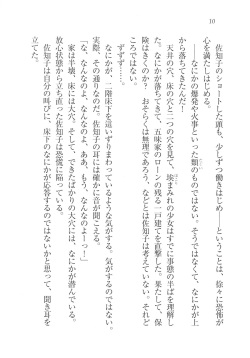 10
佐知子のショートした頭も、少しずつ働きはじめ――ということは、徐々に恐怖が
心を満たしはじめる。
なにかの爆発や火事といった類のものではない。そうではなくて、なにかが上
から落ちてきたのだ。
天井の穴、床の穴と二つの穴を見て、埃まみれの少女はすでに事態の半ばを理解し
た。なにかが落ちてきて、五味家のローンの残る一戸建てを直撃した。果たして、保
険はきくのか？　おそらくは無理であろう、などとは佐知子は考えていない。それど
ころではない。
ずずず……。
なにかが、一階床下を這いずりまわっているような気がする。気がするのではない。
実際、その通りなのだ。佐知子の耳には確かに音が聞こえる。
「な、なんなのよ、なんなのよ、ああ、もう、なんなのよーっ！」
家は半壊、床には大穴。そして、できたばかりの大穴には、なにかが潜んでいる。
放心状態から立ち直った佐知子は恐慌に陥っている。
佐知子は自分の叫びに、床下のなにかが応答するのではないかと思って、聞き耳を
立てた。